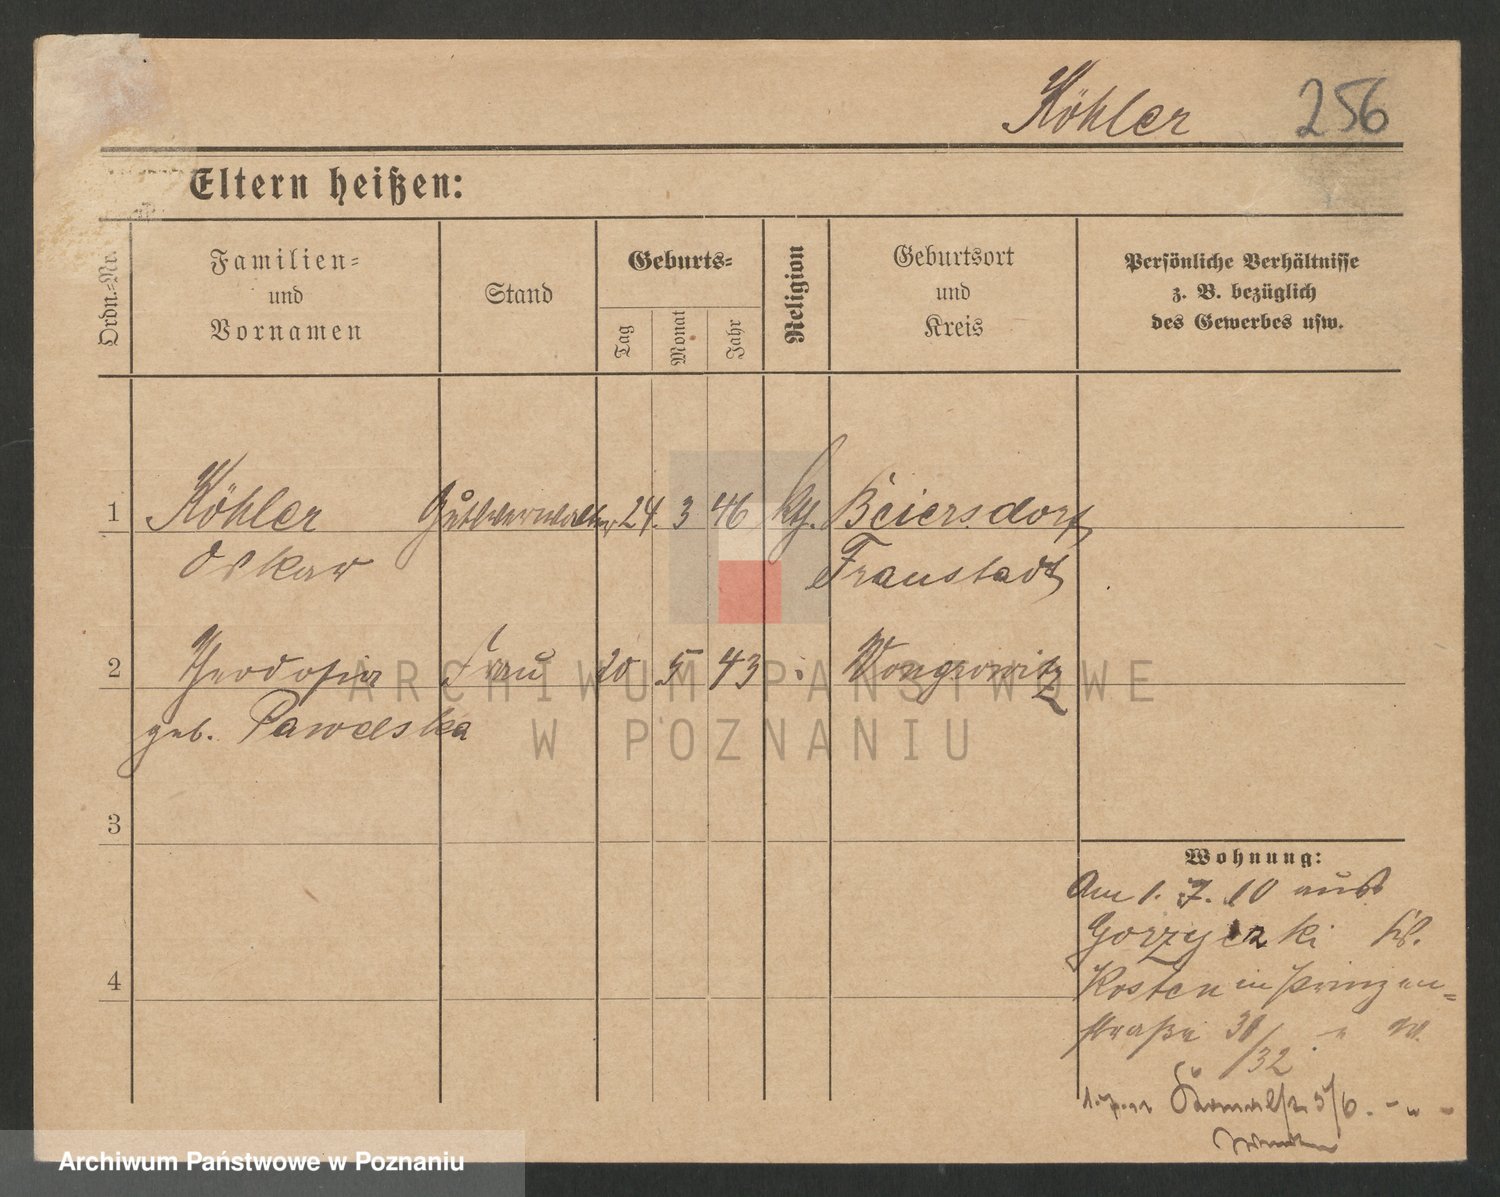 Köhler 256
Eltern heißen:
Ordn.-Nr.
Familien-
und
Vornamen
Stand
Geburts-
Tag
Monat
Jahr
Religion
Geburtsort
und
Kreis
Persönliche Verhältnisse
z. B. bezüglich
des Gewerbes usw.
1 Köhler Gutsverwalter 24. 3 46 kg. Beiersdorf
Oskar Fraustadt
2 Theodosia Frau 20 5 43 Wongrowitz
geb. Pawelska
3
Wohnung:
Am 1. 7. 10 aus
Gorzyczki Kr.
4
Kosten in Prinzen-
straße 31
/32
5/6.
ARCHIWUM PAŃSTWOWE
W POZNANIU
Archiwum Państwowe w Poznaniu